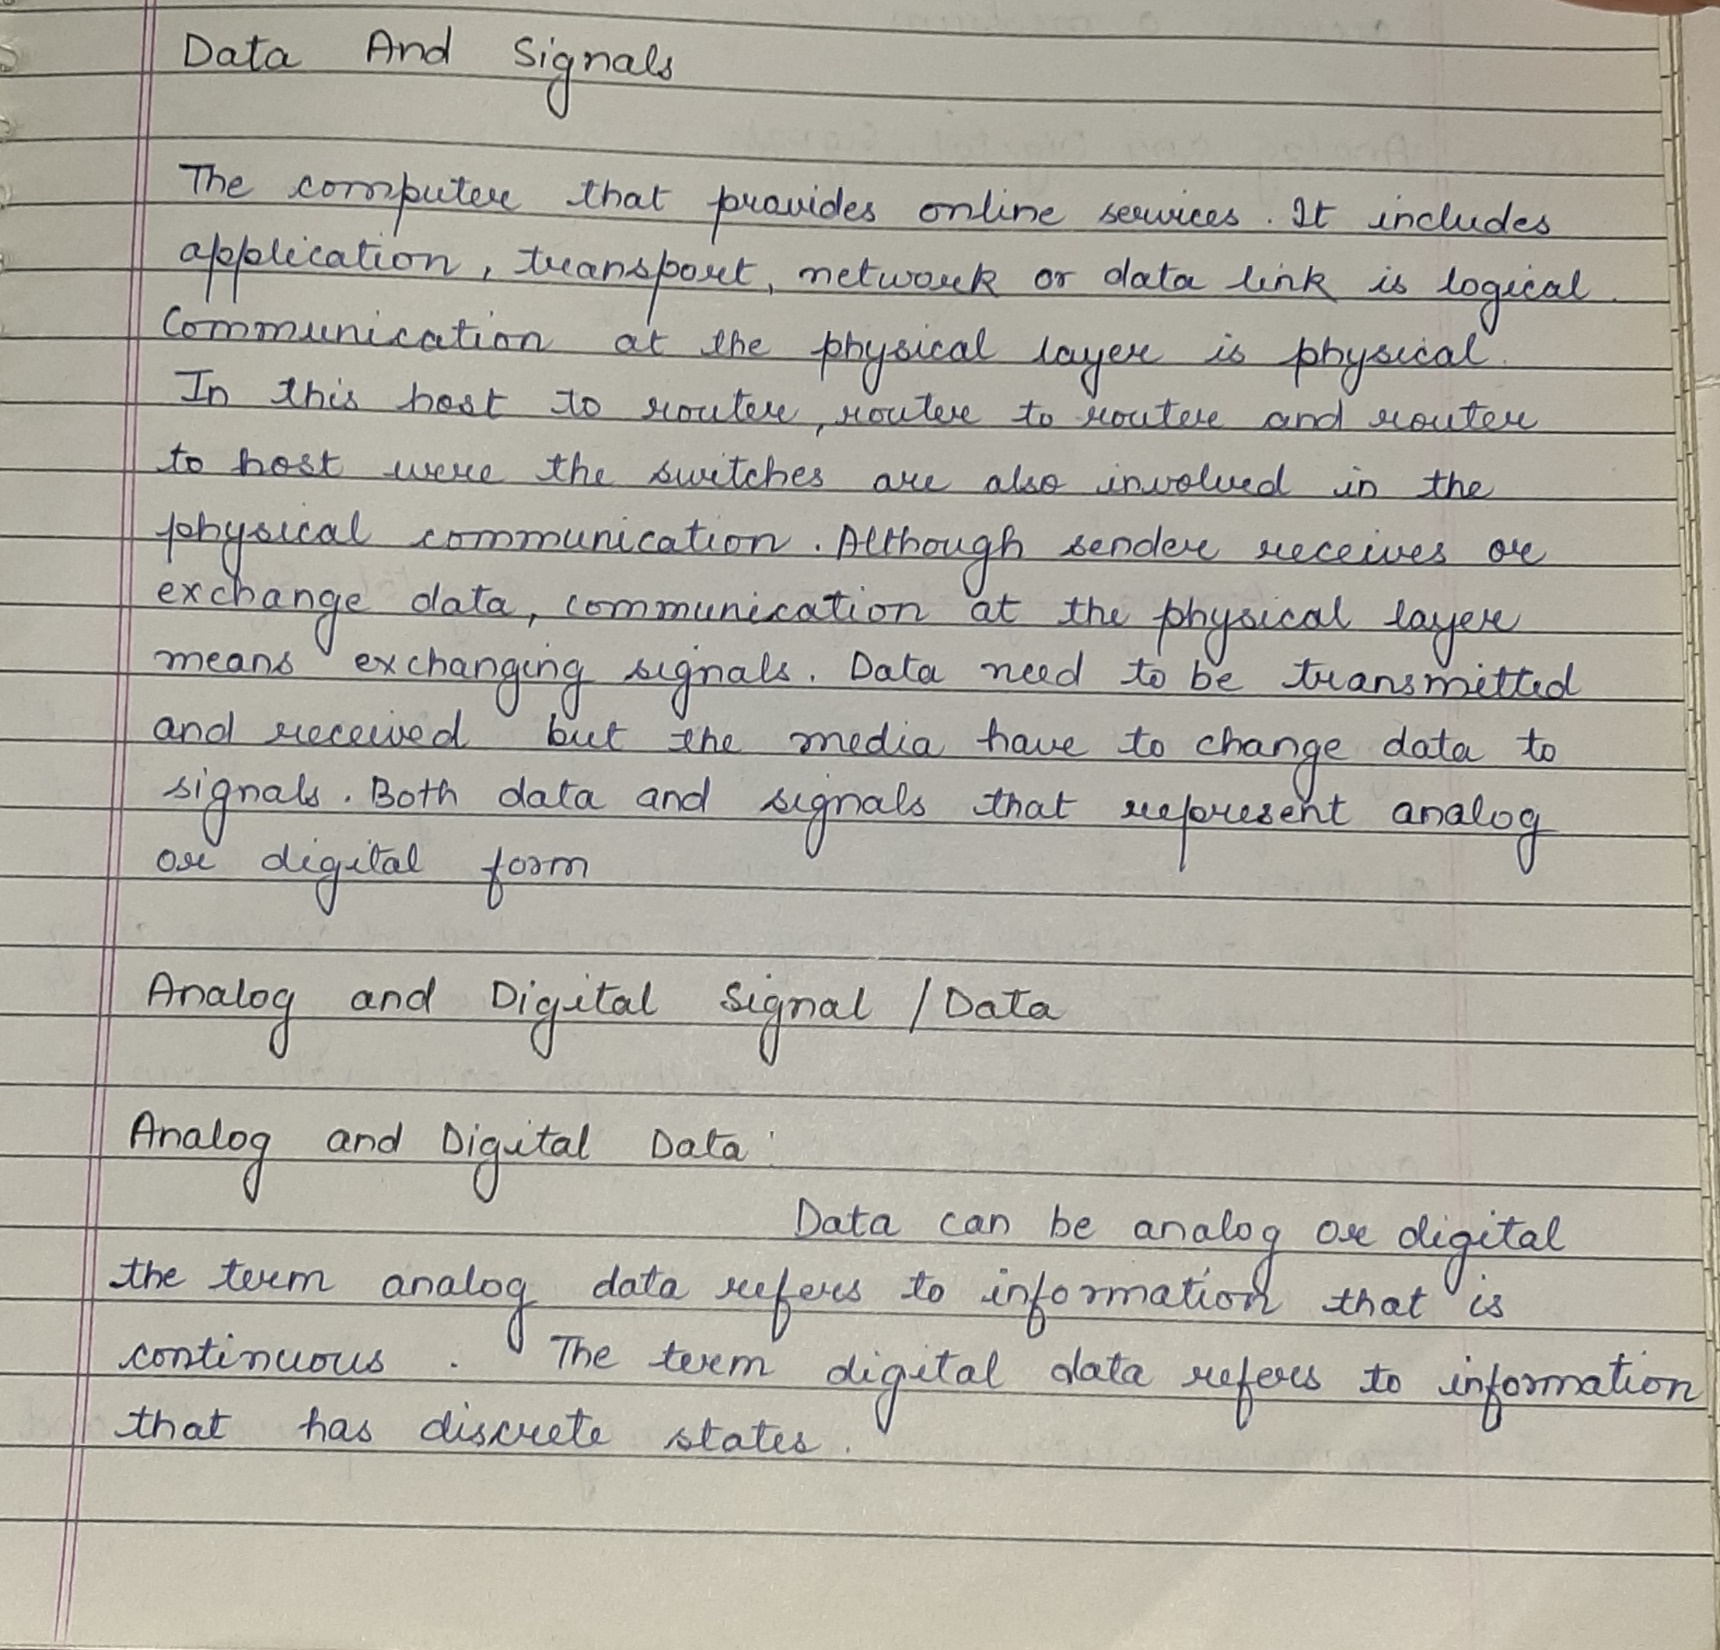 Data And Signals
The computer that provides online services. It includes
application, transport, network or data link is logical.
Communication at the physical layer is physical.
In this host to router, router to router and router
to host were the switches are also involved in the
physical communication. Although sender receives or
exchange data, communication at the physical layer
means exchanging signals. Data need to be transmitted
and received but the media have to change data to
signals. Both data and signals that represent analog
or digital form
Analog and Digital Signal / Data
Analog and Digital Data:
Data can be analog or digital
the term analog data refers to information that is
continuous. The term digital data refers to information
that has discrete states.